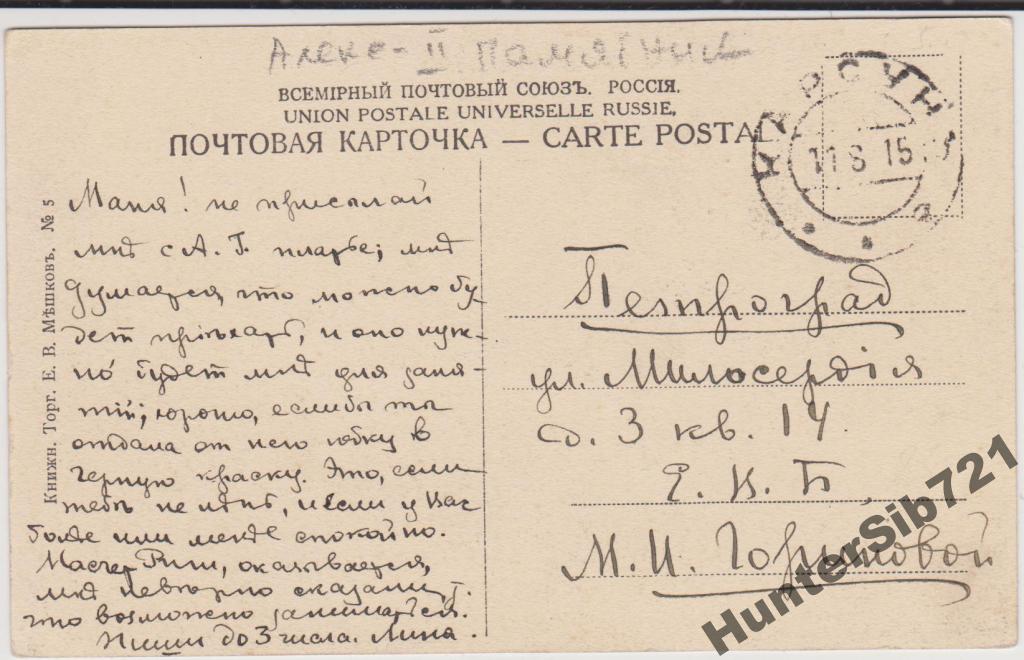 Алекс- II Памятник
ВСЕМІРНЫЙ ПОЧТОВЫЙ СОЮЗЪ. РОССІЯ.
UNION POSTALE UNIVERSELLE RUSSIE.
ПОЧТОВАЯ КАРТОЧКА — CARTE POSTAL
КАРСУН
11 8 15
Книжн. Торг. Е. В. Мѣшковъ. № 5
Маня! не присылай
мнѣ с А. Г. платье; мнѣ
думается, что можно бу-
дет пріѣхать, и оно нуж-
но будет мнѣ для заня-
тій; хорошо, если бы ты
отдала от него юбку в
черную краску. Это, если
тебѣ не лѣнь, и если у Вас
более или менѣе спокойно.
Мастер оказывается,
мнѣ невѣрно сказали,
что возможно заниматься.
Пиши до 3 числа. Лина.
Петроград
ул. Милосердія
д. 3 кв. 14
Е. В. Б.
М. И. Горшковой
HunterSib721